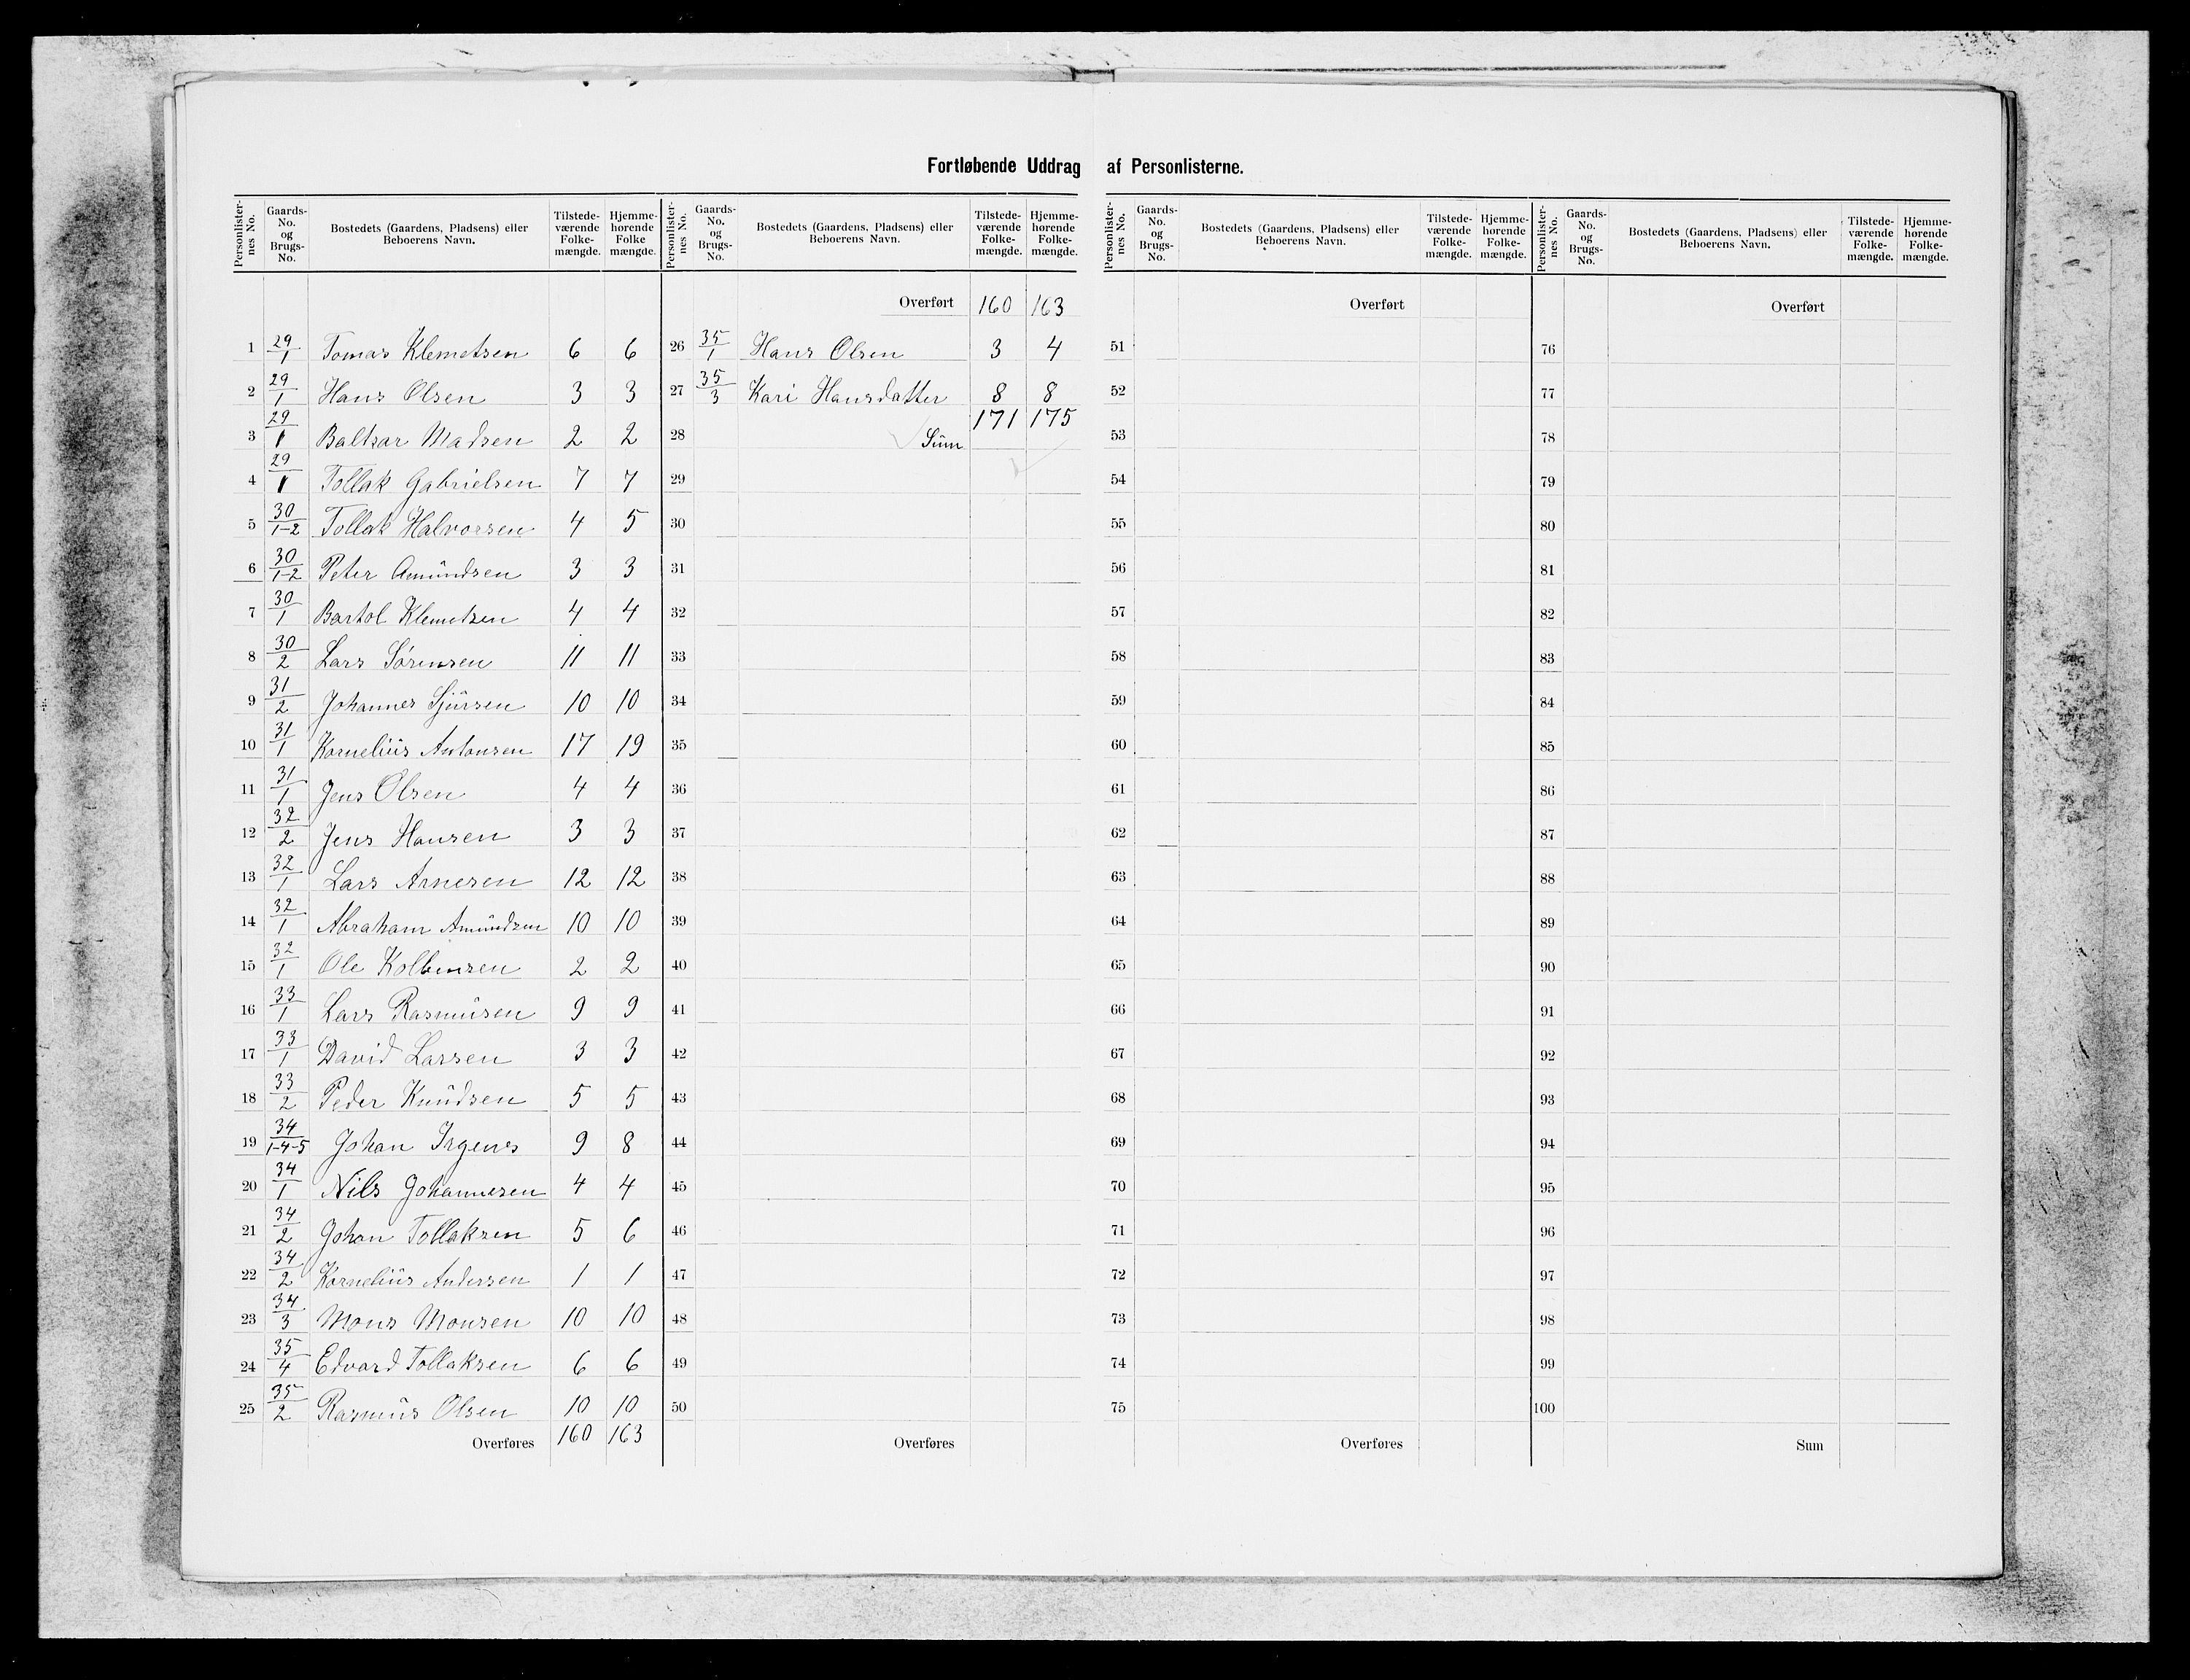 Fortløbende Uddrag af Personlisterne.
Personlister-nes No. | Gaards-No. og Brugs-No. | Bostedets (Gaardens, Pladsens) eller Beboerens Navn. | Tilstede-værende Folke-mængde. | Hjemme-hørende Folke mængde.
1 29/1 Tomas Klemetsen 6 6
2 29/1 Hans Olsen 3 3
3 29/1 Baltsar Madsen 2 2
4 29/1 Tollak Gabrielsen 7 7
5 30/1-2 Tollak Halvorsen 4 5
6 30/1-2 Peter Amundsen 3 3
7 30/1 Bartol Klemetsen 4 4
8 30/2 Lars Sørensen 11 11
9 31/2 Johannes Sjursen 10 10
10 31/1 Kornelius Antonsen 17 19
11 31/1 Jens Olsen 4 4
12 32/2 Jens Hansen 3 3
13 32/1 Lars Arnesen 12 12
14 32/1 Abraham Amundsen 10 10
15 32/1 Ole Kolbensen 2 2
16 33/1 Lars Rasmusen 9 9
17 33/1 David Larsen 3 3
18 33/2 Peder Knudsen 5 5
19 34/1-4-5 Johan Irgens 9 8
20 34/1 Nils Johannesen 4 4
21 34/2 Johan Tollaksen 5 6
22 34/2 Kornelius Andersen 1 1
23 34/3 Mons Monsen 10 10
24 35/4 Edvard Tollaksen 6 6
25 35/2 Rasmus Olsen 10 10
Overføres 160 163
Personlister-nes No. | Gaards-No. og Brugs-No. | Bostedets (Gaardens, Pladsens) eller Beboerens Navn. | Tilstede-værende Folke-mængde. | Hjemme-hørende Folke-mængde.
Overført 160 163
26 35/1 Hans Olsen 3 4
27 35/3 Kari Hansdatter 8 8
28 Sum 171 175
29
30
31
32
33
34
35
36
37
38
39
40
41
42
43
44
45
46
47
48
49
50
Overføres
Personlister-nes No. | Gaards-No. og Brugs-No. | Bostedets (Gaardens, Pladsens) eller Beboerens Navn. | Tilstede-værende Folke-mængde. | Hjemme-hørende Folke-mængde.
Overført
51
52
53
54
55
56
57
58
59
60
61
62
63
64
65
66
67
68
69
70
71
72
73
74
75
Overføres
Personlister-nes No. | Gaards-No. og Brugs-No. | Bostedets (Gaardens, Pladsens) eller Beboerens Navn. | Tilstede-værende Folke-mængde. | Hjemme-hørende Folke-mængde.
Overført
76
77
78
79
80
81
82
83
84
85
86
87
88
89
90
91
92
93
94
95
96
97
98
99
100
Sum